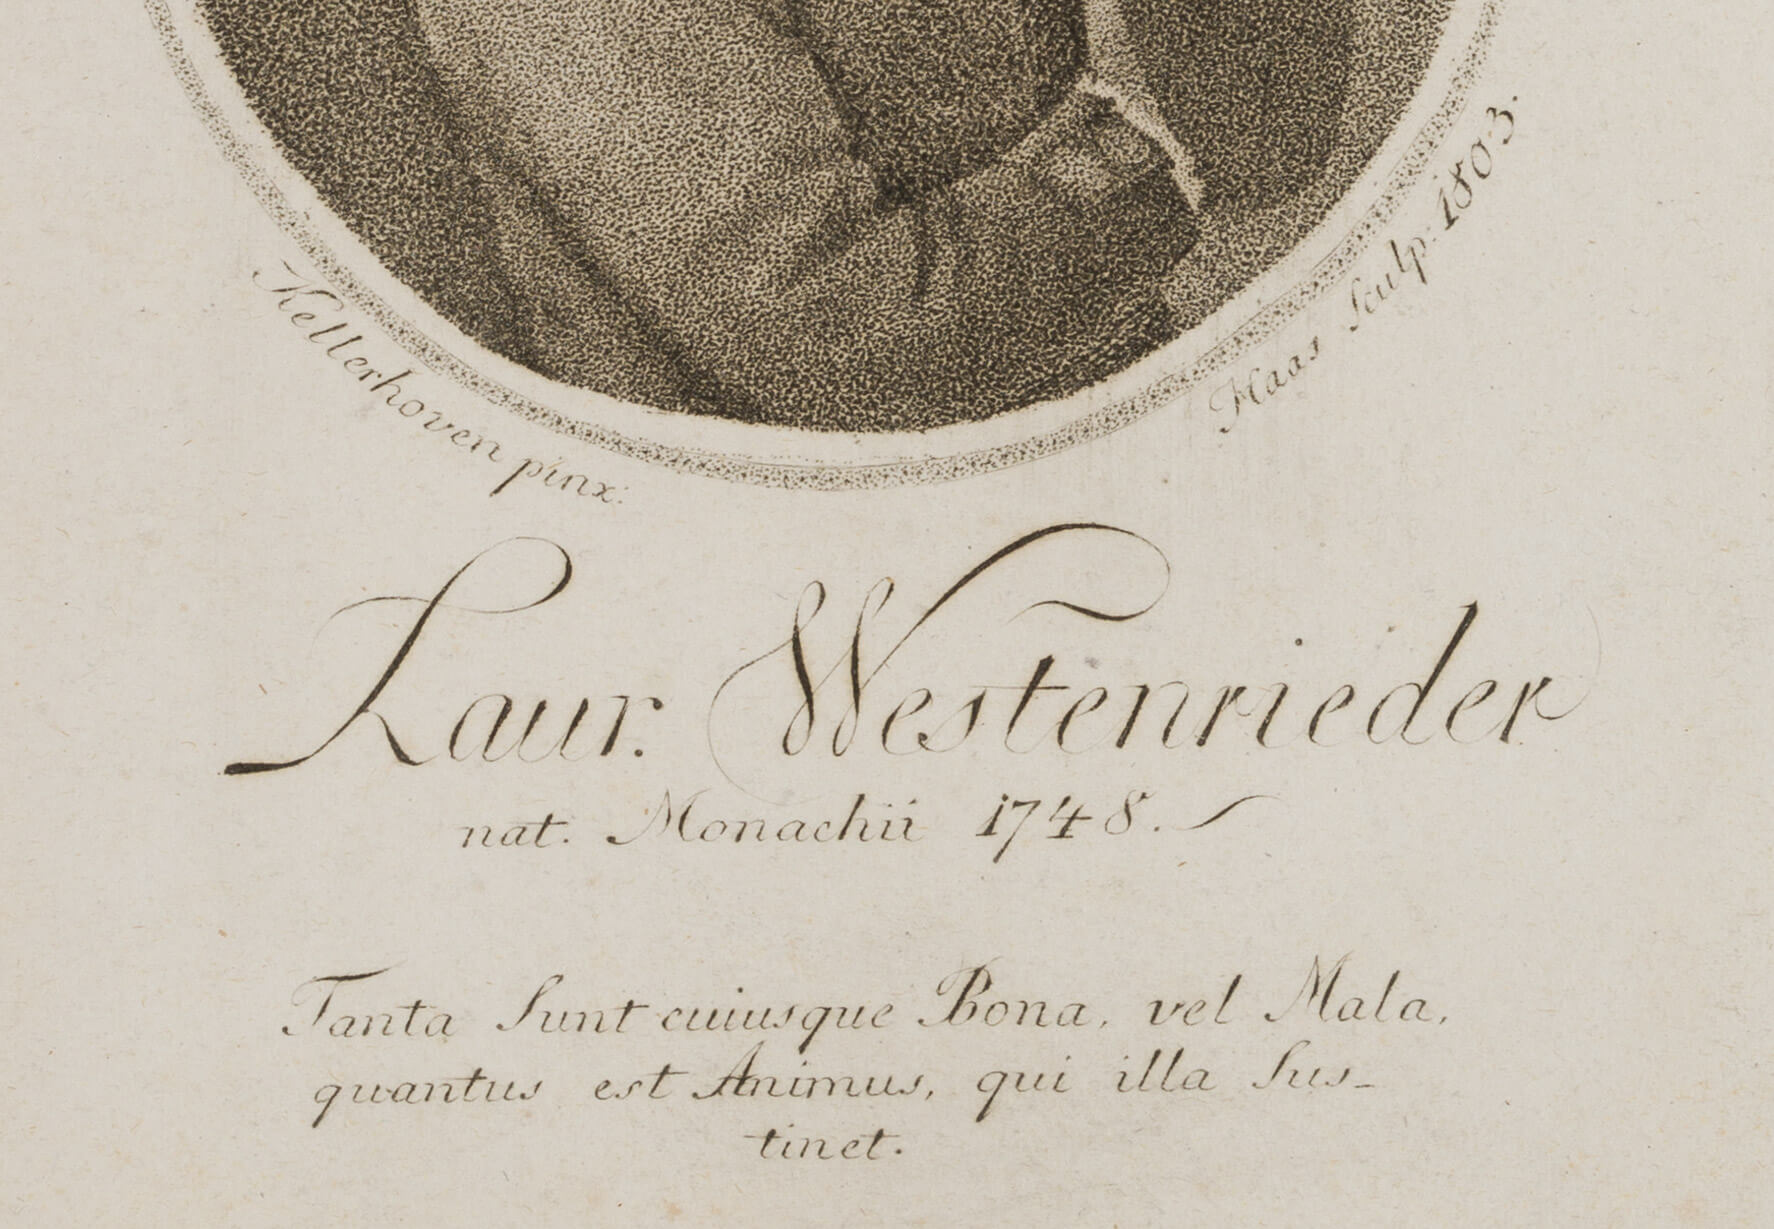 Kellerhoven pinx:
Haas Sculp: 1803.
Laur. Westenrieder
nat. Monachii 1748.
Tanta Sunt cuiusque Bona, vel Mala,
quantus est Animus, qui illa Sus-
tinet.